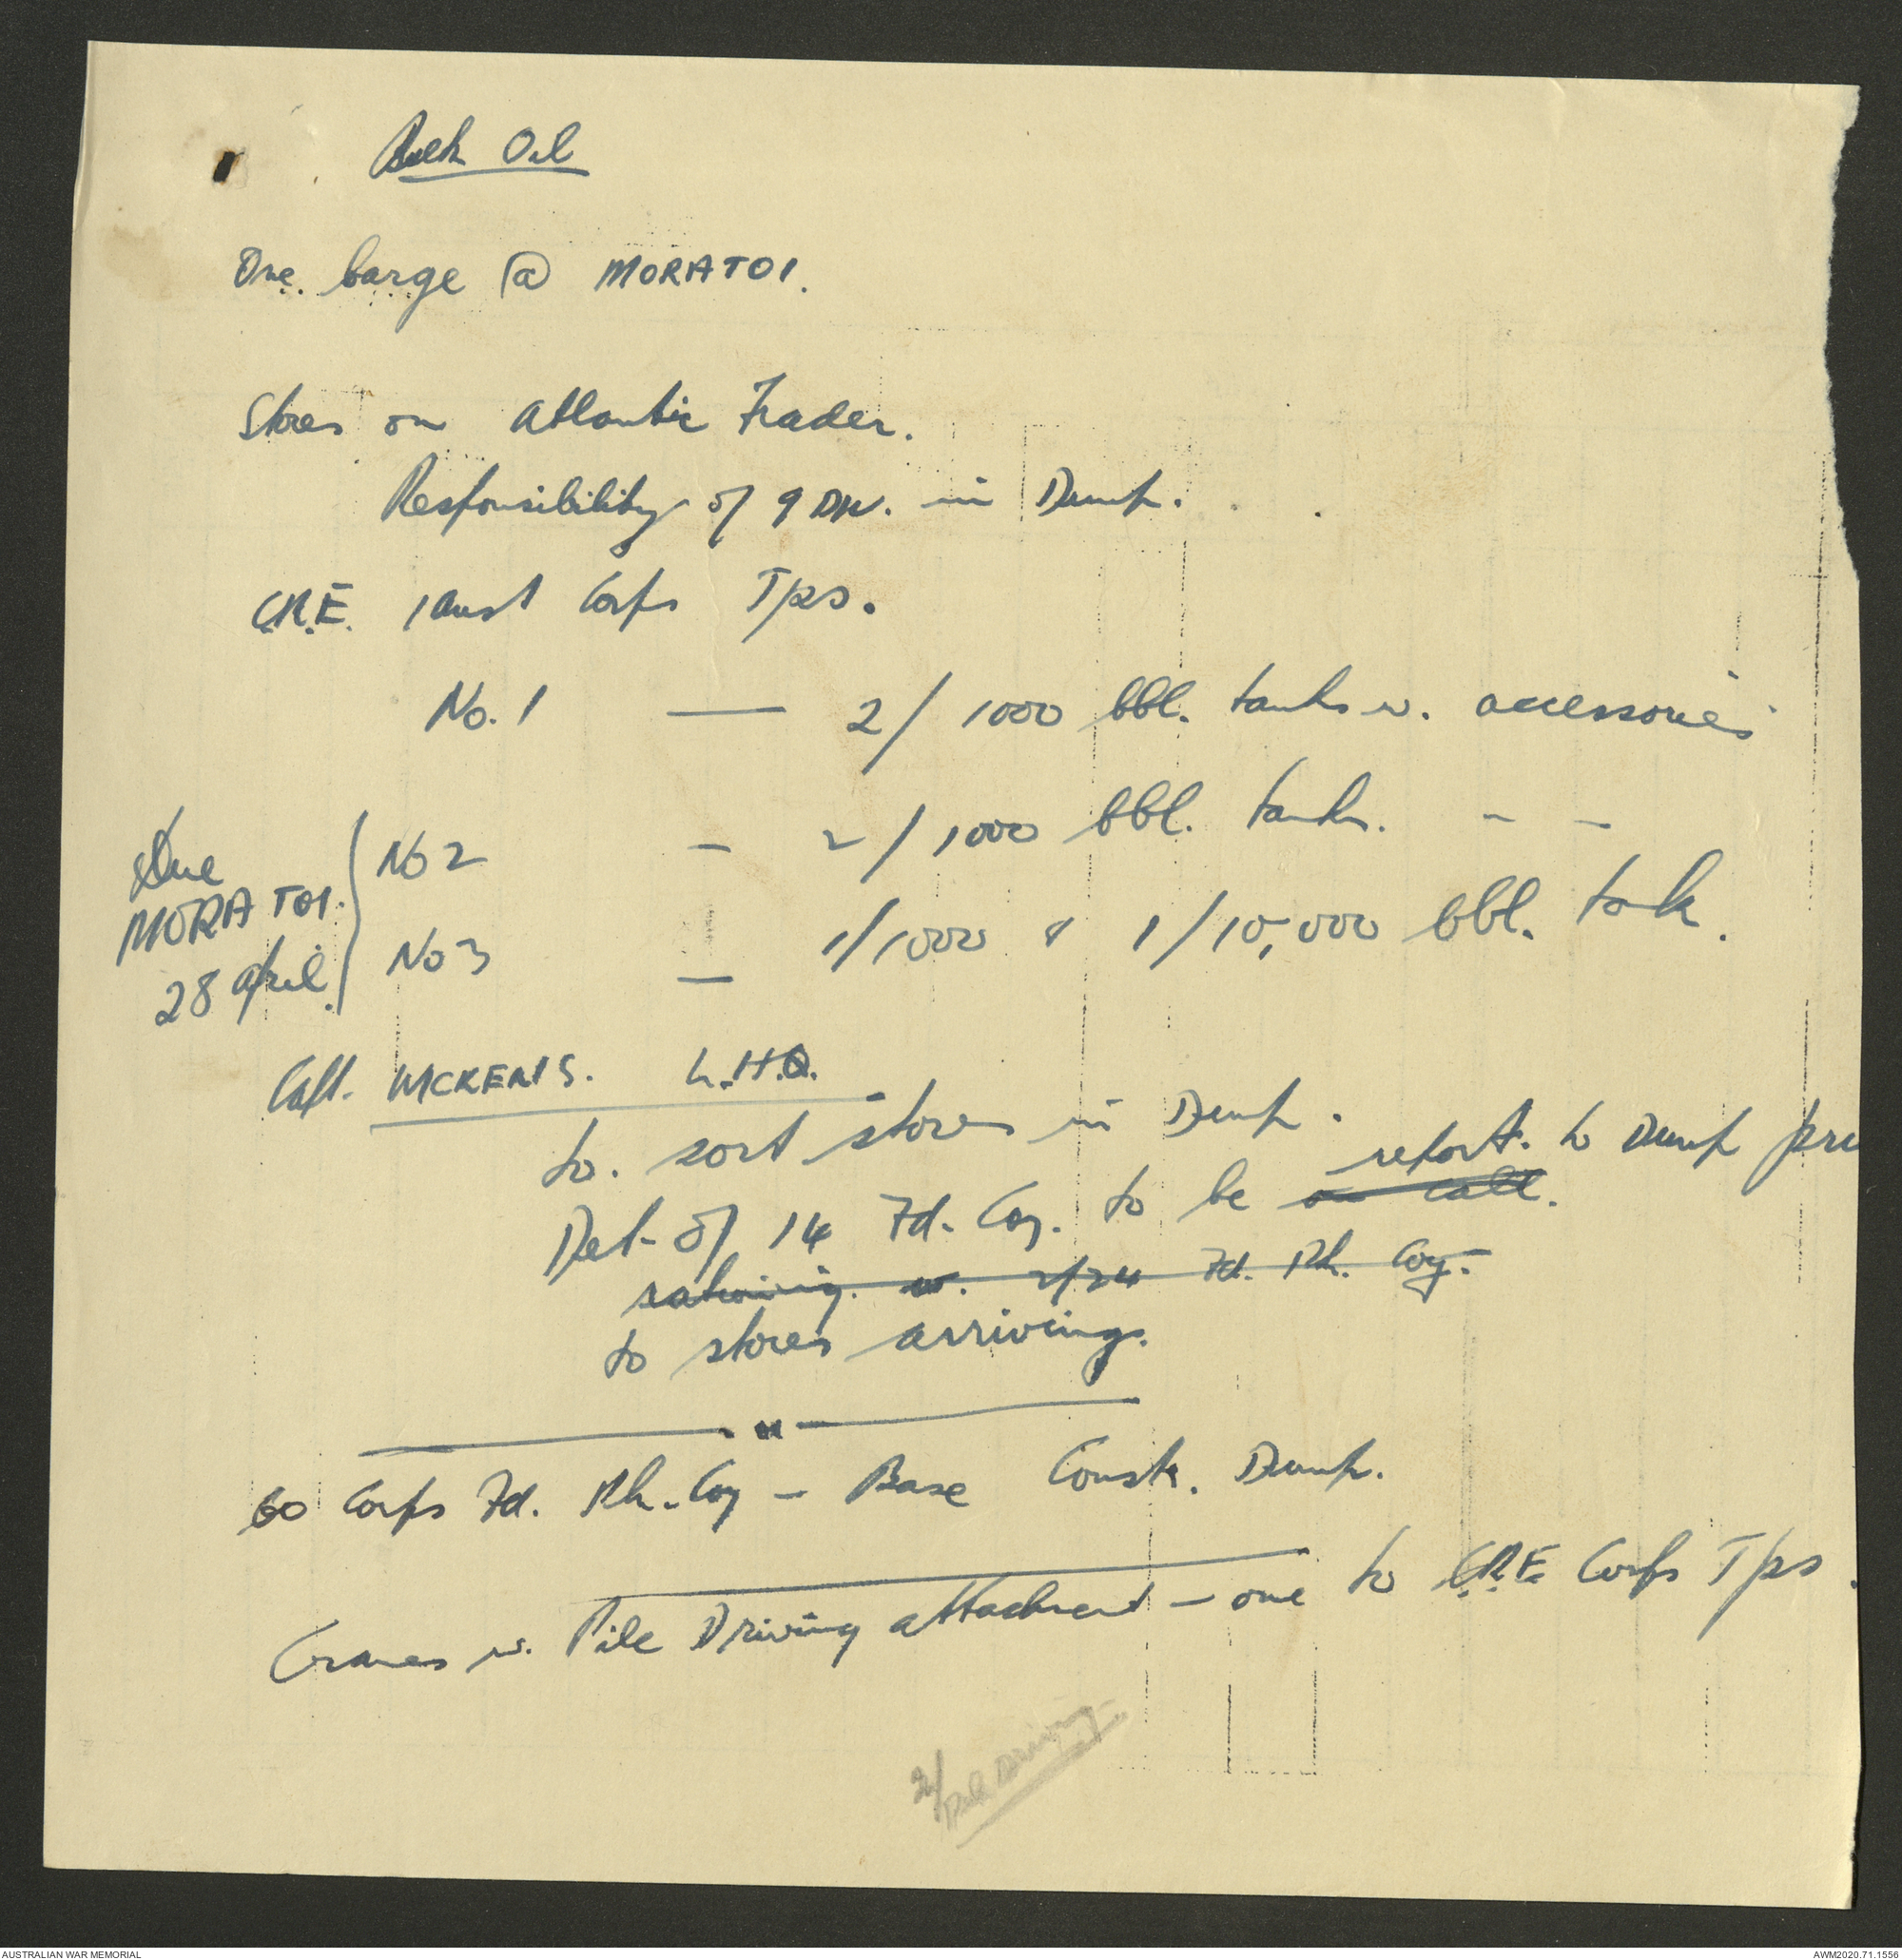 Bulk Oil
One barge @ MORATOI.
Stores on Atlantic Trader.
Responsibility of 9 Div. in Dump.
C.R.E. 1 Aust Corps Tps.
No. 1 — 2/ 1000 bbl. tanks w. accessories
No 2 — 2/ 1000 bbl. tanks. - -
Due
MORATOI.
28 April
No 3 — 1/1000 & 1/10,000 bbl. tank.
Capt. L.H.Q.
to. sort stores in Dump.
report. to Dump
Det. of 14 Fd. Coy. to be on call.
w. 2/24 Fd. Pk. Coy.
to stores arriving.
60 Corps Fd. Pk. Coy - Base Constr. Dump.
Cranes w. Pile Driving attachment - one to C.R.E. Corps Tps.
2/ Pile Driving
AUSTRALIAN WAR MEMORIAL
AWM2020.71.1556